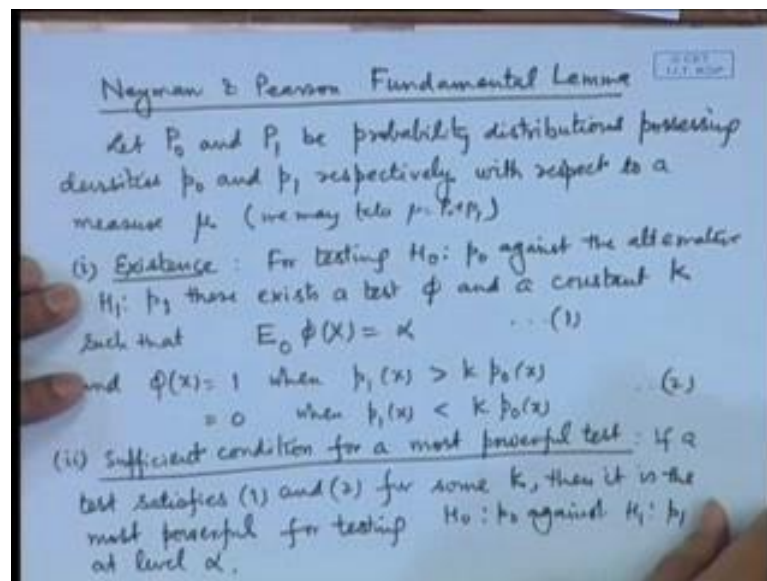 Neyman & Pearson Fundamental Lemma
Let P₀ and P₁ be probability distributions possessing
densities p₀ and p₁ respectively with respect to a
measure μ (we may take μ = P₀+P₁)
(i) Existence : For testing H₀: p₀ against the alternative
H₁: p₁ there exists a test ϕ and a constant k
such that E₀ ϕ(X) = α ...(1)
and ϕ(x) = 1 when p₁(x) > k p₀(x)
= 0 when p₁(x) < k p₀(x) ..(2)
(ii) Sufficient condition for a most powerful test : If a
test satisfies (1) and (2) for some k, then it is the
most powerful for testing H₀: p₀ against H₁: p₁
at level α.